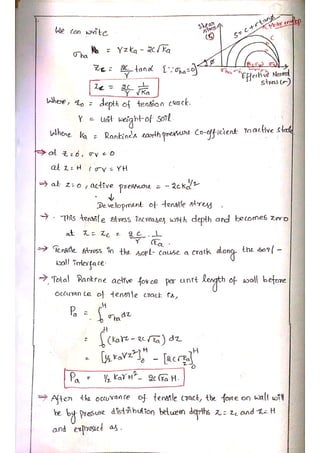 We can write
σha = γzka - 2c√ka
zc = 2c/γ tanα [∵ σha = 0]
zc = 2c/γ 1/√ka
Shear stress (S)
S = c + σ tan φ
Effective Normal stress (σ)
Where, zc = depth of tension crack.
γ = unit weight of soil
Where ka = Rankine's earth pressure Co-efficient in active state
→ at z = 0, σv = 0
at z = H, σv = γH
→ at z = 0, active pressure = -2cka^1/2
↓
Development of tensile stress.
→ This tensile stress increases with depth and becomes zero
at z = zc = 2c/γ · 1/√ka
→ Tensile stress in the soil cause a crack along the soil-
wall interface.
→ Total Rankine active force per unit length of wall before
occurance of tensile crack is,
Pa = ∫₀ᴴ σha dz
= ∫₀ᴴ (kaγz - 2c√ka) dz
= [½ kaγz²]₀ᴴ - [2c√ka z]₀ᴴ
Pa = ½ kaγH² - 2c√ka H.
→ After the occurance of tensile crack, the force on wall will
be by pressure distribution between depths z = zc and z = H
and expressed as.